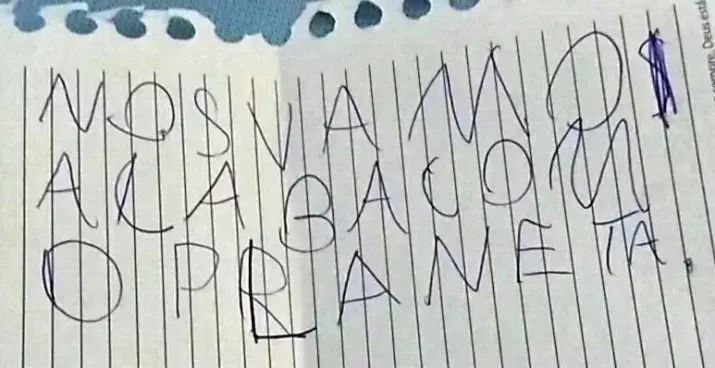 NOS VAMOS
ACABA COM
O PLANETA.
Deus está